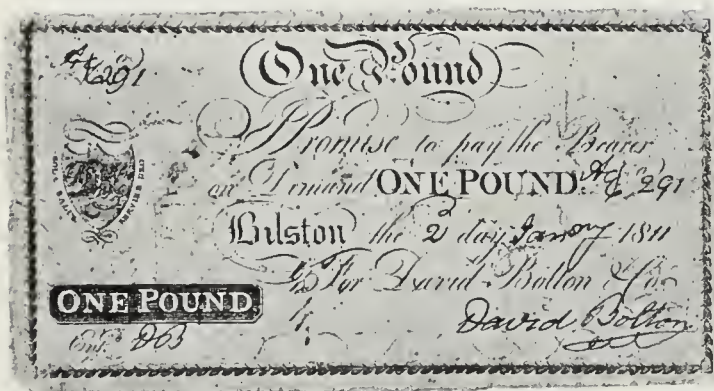 291
One Pound
I Promise to pay the Bearer
on Demand ONE POUND. 291
Bilston the 2 day Janry 1811
For David Bolton & Co
ONE POUND
Entd DB
David Bolton